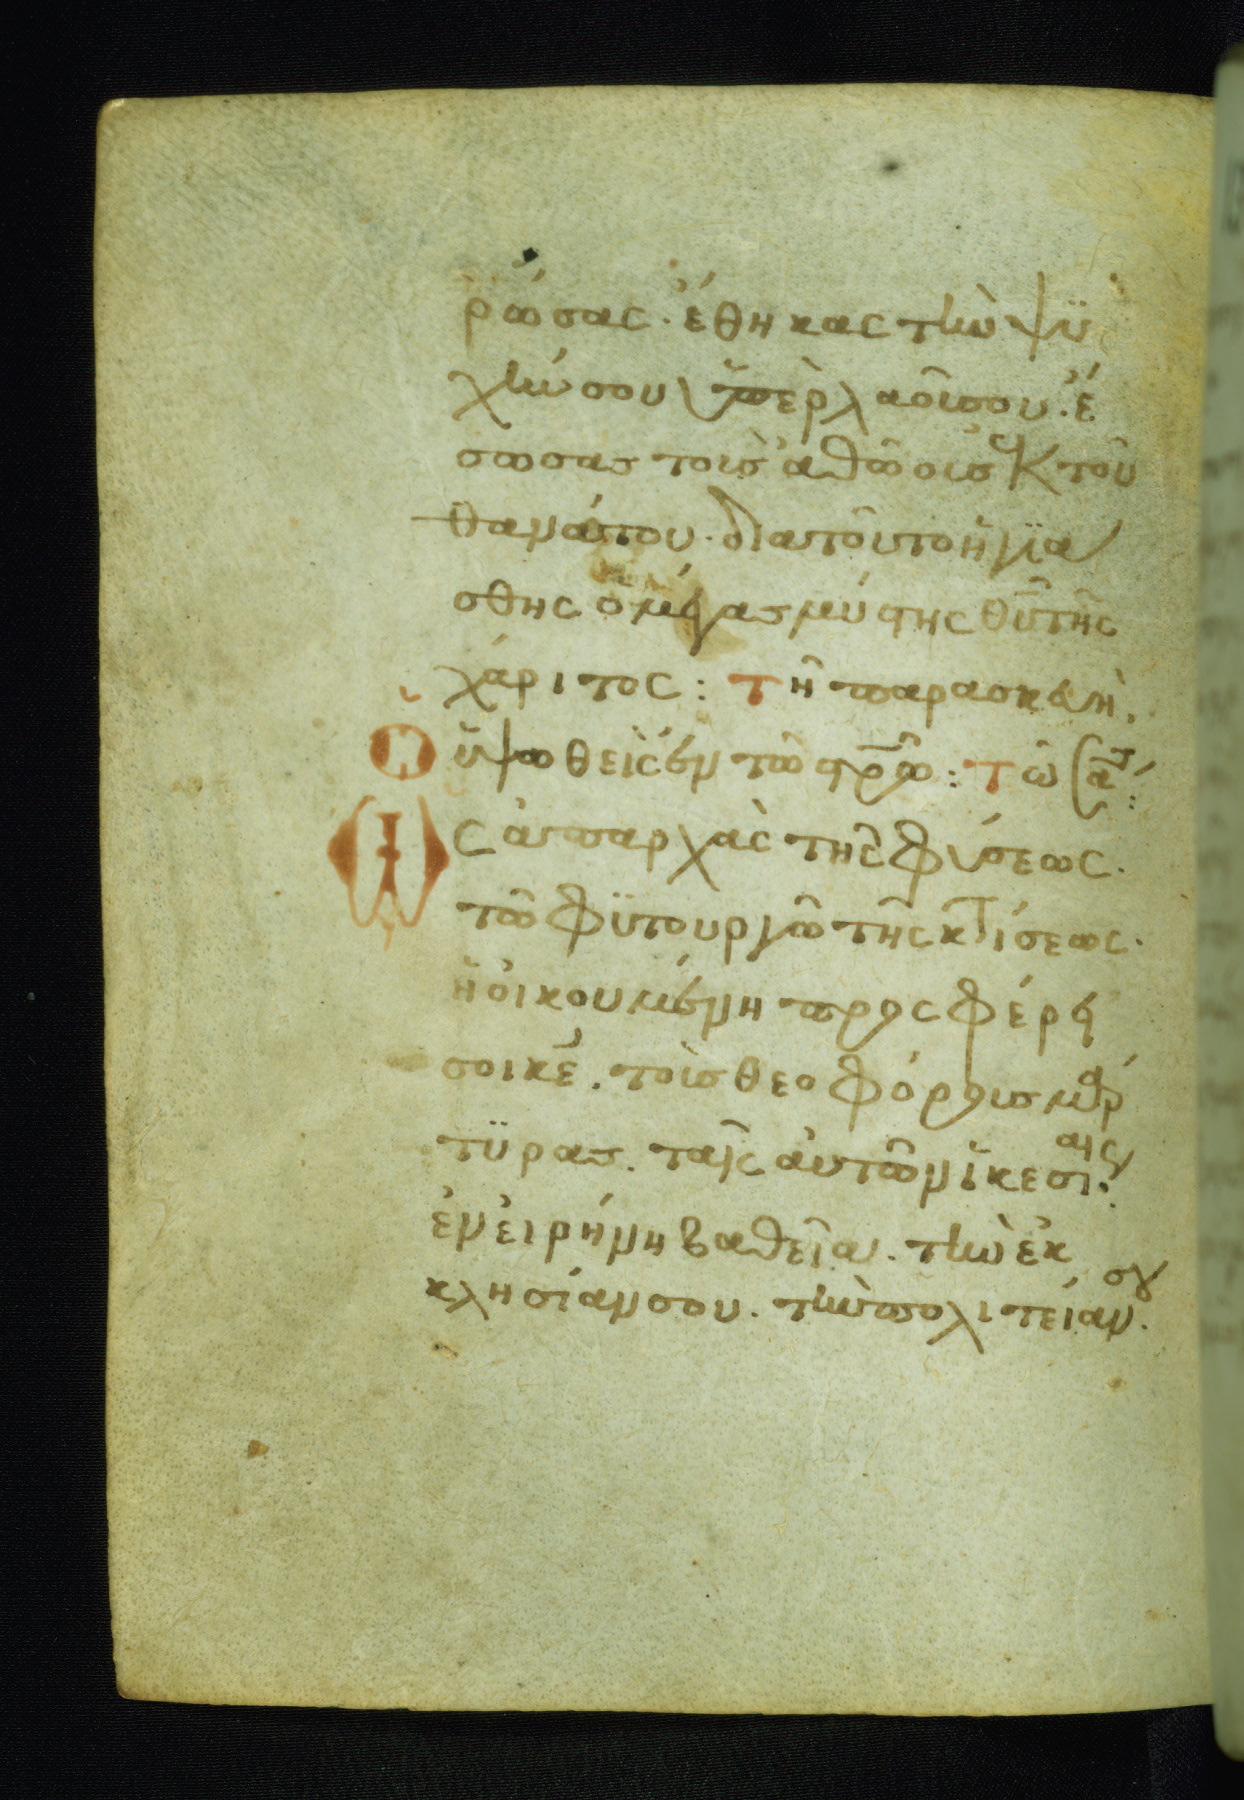 ρώσας· ἔθηκας τὴν ψϋ
χήν σου ὑπὲρ λαοῦ σου· ἔ
σωσας τοὺς ἀθώους ἐκ τοῦ
θανάτου· διατοῦτο ἡγϊά
σθης ὁ μέγας μύστης θῦ τῆς
χάριτος: τῆ παρασκευῆ.
Ὁ ὑψωθεὶς ἐν τῶ στρῶ: τῶ σα:
Ὡς ἀπαρχὰς τῆς φύσεως·
τῶ φϋτουργῶ τῆς κτίσεως·
ἡ οἰκουμένη προςφέρει
σοι κε̄. τοὺς θεοφόρους μάρ
τϋρας. ταῖς αὐτῶν ἱκεσίαις·
ἐν εἰρήνη βαθεία. τὴν ἐκ
κλησίαν σου. τὴν πολιτείαν σου.